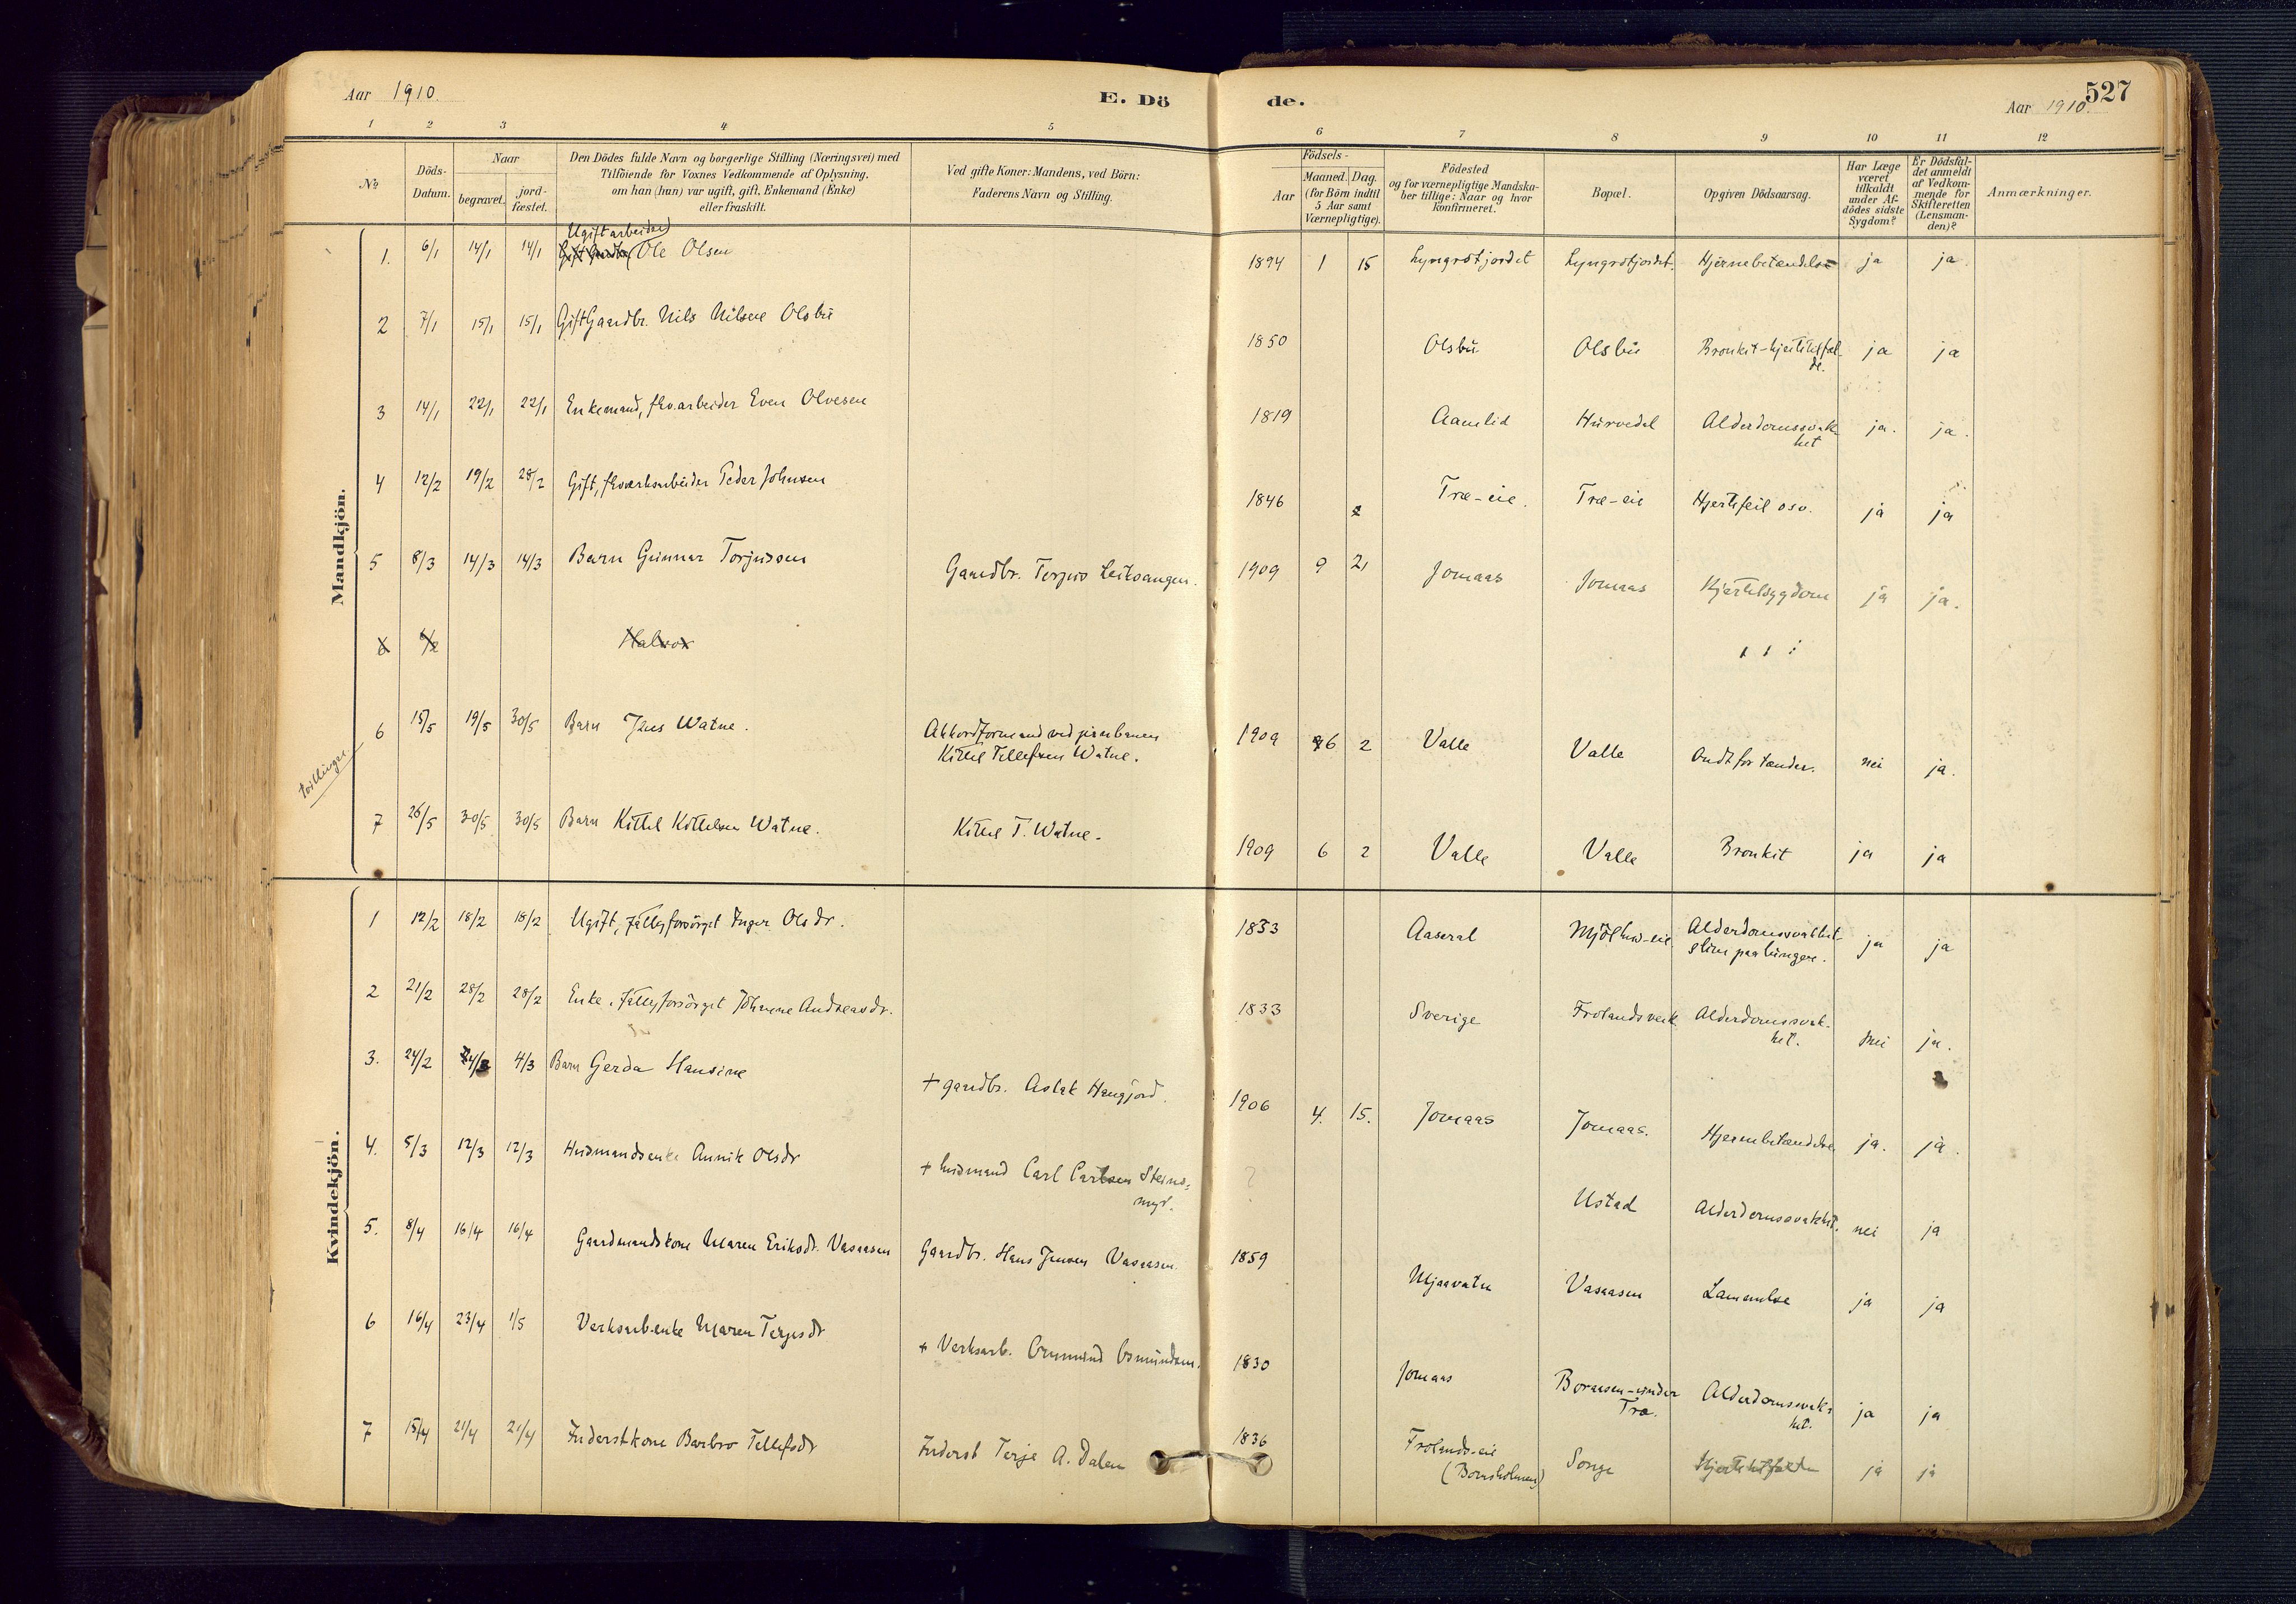 Aar 1910.
E. Dö
de.
527
Aar 1910.
1 2 3 4 5 6 7 8 9 10 11 12
No
Döds-
Datum.
Naar
begravet.
jord-
fæstet.
Den Dödes fulde Navn og borgerlige Stilling (Næringsvei) med
Tilföiende for Voxnes Vedkommende af Oplysning,
om han (hun) var ugift, gift, Enkemand (Enke)
eller fraskilt.
Ved gifte Koner: Mandens, ved Börn:
Faderens Navn og Stilling.
Födsels-
Aar
Maaned. Dag.
(for Börn indtil
5 Aar samt
Værnepligtige).
Födested
og for værnepligtige Mandska-
ber tillige: Naar og hvor
konfirmeret.
Bopæl.
Opgiven Dödsaarsag.
Har Læge
været
tilkaldt
under Af-
dödes sidste
Sygdom?
Er Dödsfal-
det anmeldt
af Vedkom-
mende for
Skifteretten
(Lensman-
den)?
Anmærkninger.
Mandkjön.
Ugift arbeider
1. 6/1 14/1 14/1 Gift Gaardbr. Ole Olsen 1894 1 15 Lyngrotjordet Lyngrotjordet. Hjernebetændelse ja ja.
2 7/1 15/1 15/1 Gift Gaardbr. Nils Nilsen Olsbu 1850 Olsbu Olsbu Bronkit-hjertetilfæl-
de. ja ja
3 14/1 22/1 22/1 Enkemand, fhv. arbeider Even Olvesen 1819 Aamlid Hurvedal Alderdomssvak-
het ja. ja.
4 12/2 19/2 28/2 Gift, fhv værksarbeider Peder Johnsen 1846 Træ-eie. Træ-eie Hjertefeil osv. ja ja
5 8/3 14/3 14/3 Barn Gunnar Torjussen Gaardbr. Terjus Leiksangen. 1909 9 21 Jomaas Jomaas Kjertelsygdom ja ja.
6 6/2 Halvor
tvillinger
6 15/5 19/5 30/5 Barn Jens Watne. Akkordformand ved jernbanen
Kittel Tellefsen Watne. 1909 6 2 Valle Valle Ondt for tænder. nei ja.
7 26/5 30/5 30/5 Barn Kittel Kittelsen Watne. Kittel T. Watne. 1909 6 2 Valle Valle Bronkit ja ja
Kvindekjön.
1 12/2 18/2 18/2 Ugift, fattigforsörget Inger Olsdr. 1833 Aaseral Mjölhus-eie Alderdomssvakhet-
slim paa lungere. ja ja
2 21/2 28/2 28/2 Enke, fattigforsörget Johanne Andreasdr. 1833 Sverige Frolandsverk Alderdomssvak-
het. nei ja.
3. 24/2 4/3 4/3 Barn Gerda Hansine + gaardbr. Aslak Haugjord. 1906 4. 15. Jomaas Jomaas. Hjernebetændelse ja. ja.
4. 5/3 12/3 12/3 Husmandsenke Annik Olsdr + husmand Carl Carlsen Steins-
myr. ? Ustad Alderdomssvakhet. nei ja
5. 8/4 16/4 16/4 Gaardmandskone Maren Eriksdr. Vasaasen Gaardbr. Hans Jensen Vasaasen. 1859 Mjaavatn Vasaasen Lammelse ja ja
6 16/4 23/4 1/5 Verksarb.enke Maren Terjesdr + Verksarb. Gunmund Gsmundsen. 1830 Jomaas Boraasen-under
Træ. Alderdomssvak-
het. ja ja
7 15/4 21/4 21/4 Inderstkone Barbro Tellefsdr Inderst Terje A. Dalen 1836 Frolands-eie
(Bornholmen) Songe Hjertetilfælde ja ja